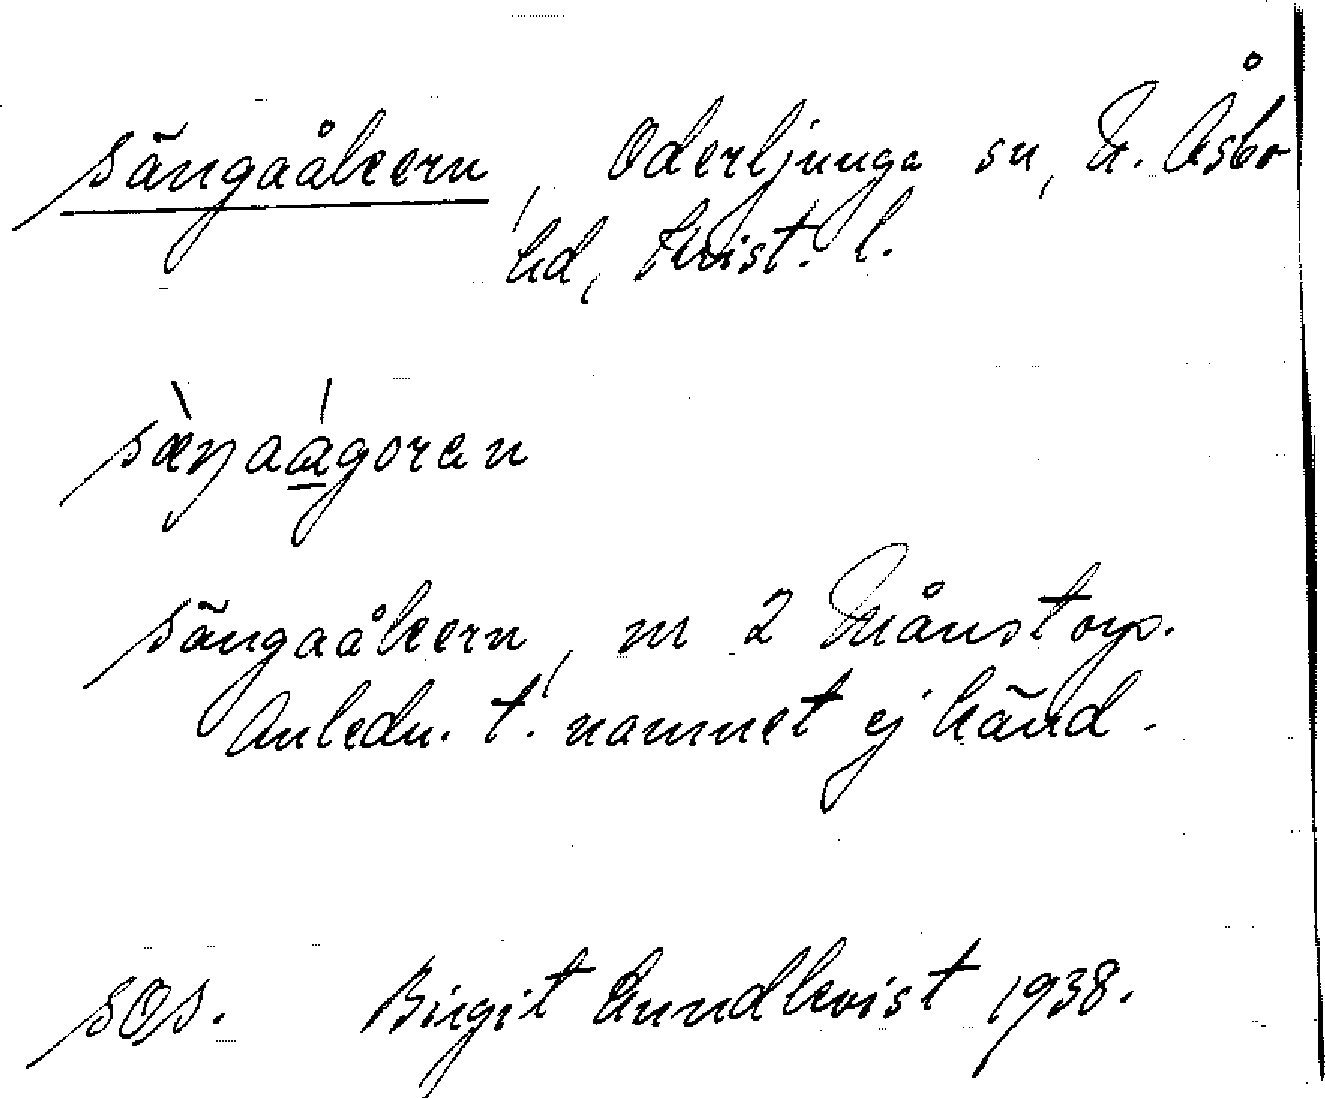 sängaåkern, Oderljunga sn, N. Åsbo
hd, Krist. l.
sæŋaágoran
sängaåkern, nr 2 Månstorp.
Anledn. t. namnet ej känd.
SOS. Birgit Lundkvist 1938.